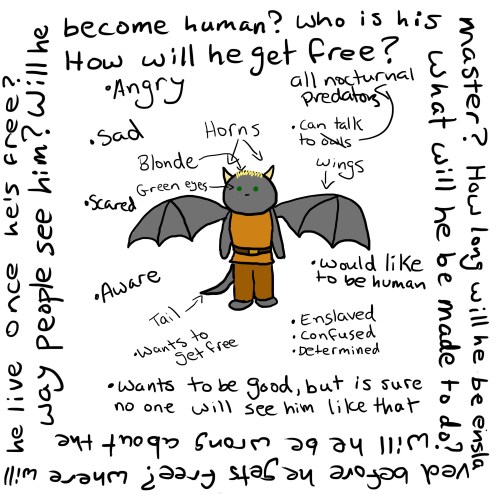 How will he get free?
What will he be made to do?
Will he be wrong about the
way people see him? Will he
become human? Who is his
master? How long will he be einsla
ved before he gets free? Where will
he live once he's free?
•Angry
all nocturnal
predators
•Sad
Horns
•Can talk
to owls
Blonde
Wings
Green eyes
•Scared
•Would like
to be human
•Aware
Tail
•Wants to
get free
•Enslaved
•Confused
•Determined
•Wants to be good, but is sure
no one will see him like that